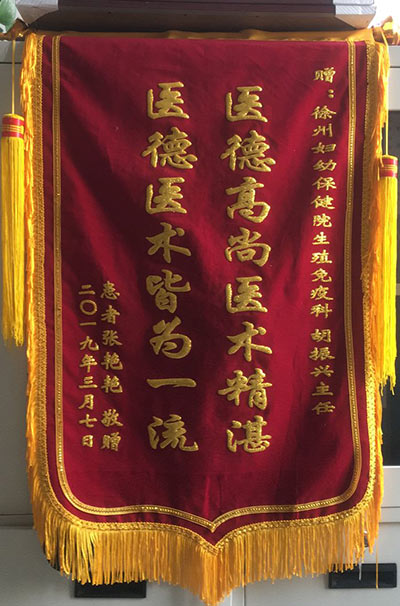 赠：徐州妇幼保健院生殖免疫科 胡振兴主任
医德高尚医术精湛
医德医术皆为一流
患者张艳艳 敬赠
二〇一九年三月七日